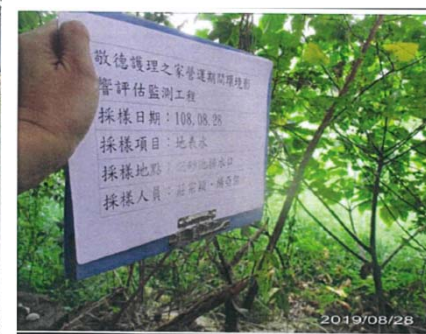 敬德護理之家營運期間環境影
響評估監測工程
採樣日期：108.08.28
採樣項目：地表水
採樣地點：沉砂池排水口
採樣人員：莊
2019/08/28